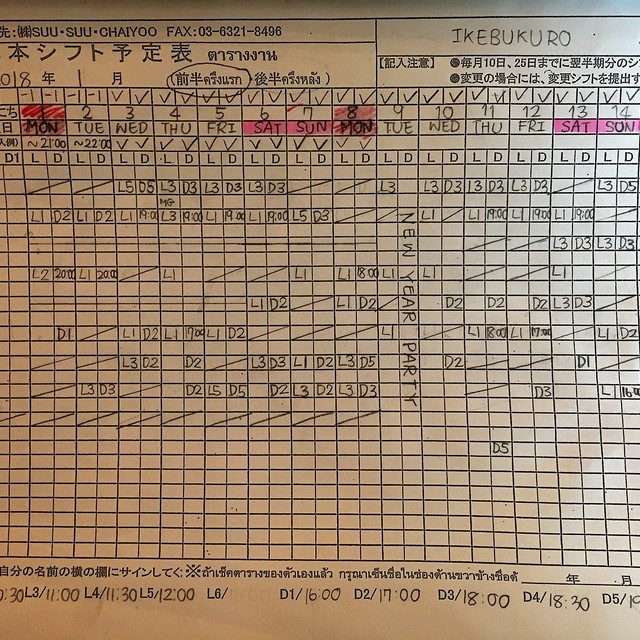 先: ㈱SUU・SUU・CHAIYOO FAX:03-6321-8496
IKEBUKURO
本シフト予定表 ตารางงาน
【記入注意】 ●毎月10日、25日までに翌半期分のシ
018年 1月 (前半ครึ่งแรก・後半ครึ่งหลัง)
●変更の場合には、変更シフトを提出す
2 3 4 5 6 7 8 9 10 11 12 13 14
日 MON TUE WED THU FRI SAT SUN MON TUE WED THU FRI SAT SUN
~21:00 ~22:00
D1 L D L D L D L D L D L D L D L D L D L D L D L D L D L D
L5 D5 L3 D3 L3 D3 L3 D3 L3 L3 D3 L3 D3 L3 D3 L3 D5
MG
L1 D2 L1 D2 L1 19:00 L3 19:00 L1 19:00 L1 19:00 L5 D3 L1 L1 19:00 L1 19:00 L1 19:00
L3 D3 L3 D3
L2 20:00 L1 20:00 L1 L1 L1 18:00 L1 L1 L1
L1 D2 L1 D2 D2 D2 D2 L3 D3
D1 L1 D2 L1 17:00 L1 D2 L1 L1 18:00 L1 17:00 L1 D2
L3 D2 D2 L3 D3 L1 D2 L3 D5 D2 D1
L3 D3 D2 L5 D5 D2 L3 D2 L3 D3 D3 L
D5
NEW YEAR PARTY
自分の名前の横の欄にサインしてく
年 月
L3/11:00 L4/11:30 L5/12:00 L6/ D1/16:00 D2/17:00 D3/18:00 D4/18:30 D5/19